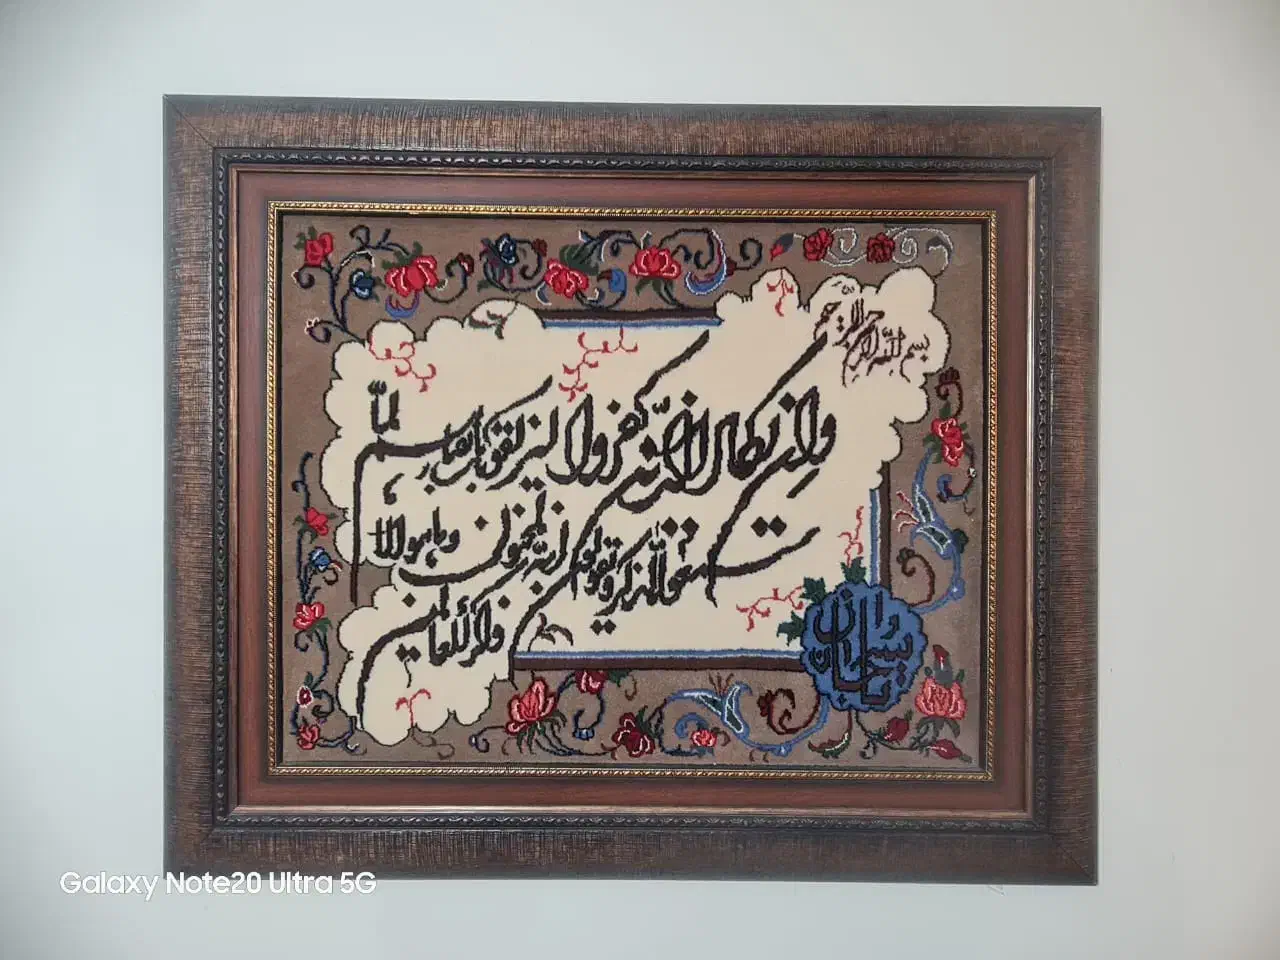 بسم الله الرحمن الرحیم
وان یکاد الذین کفروا لیزلقونک بابصارهم لما
سمعوا الذکر و یقولون انه لمجنون و ما هو الا
ذکر للعالمین
Galaxy Note20 Ultra 5G